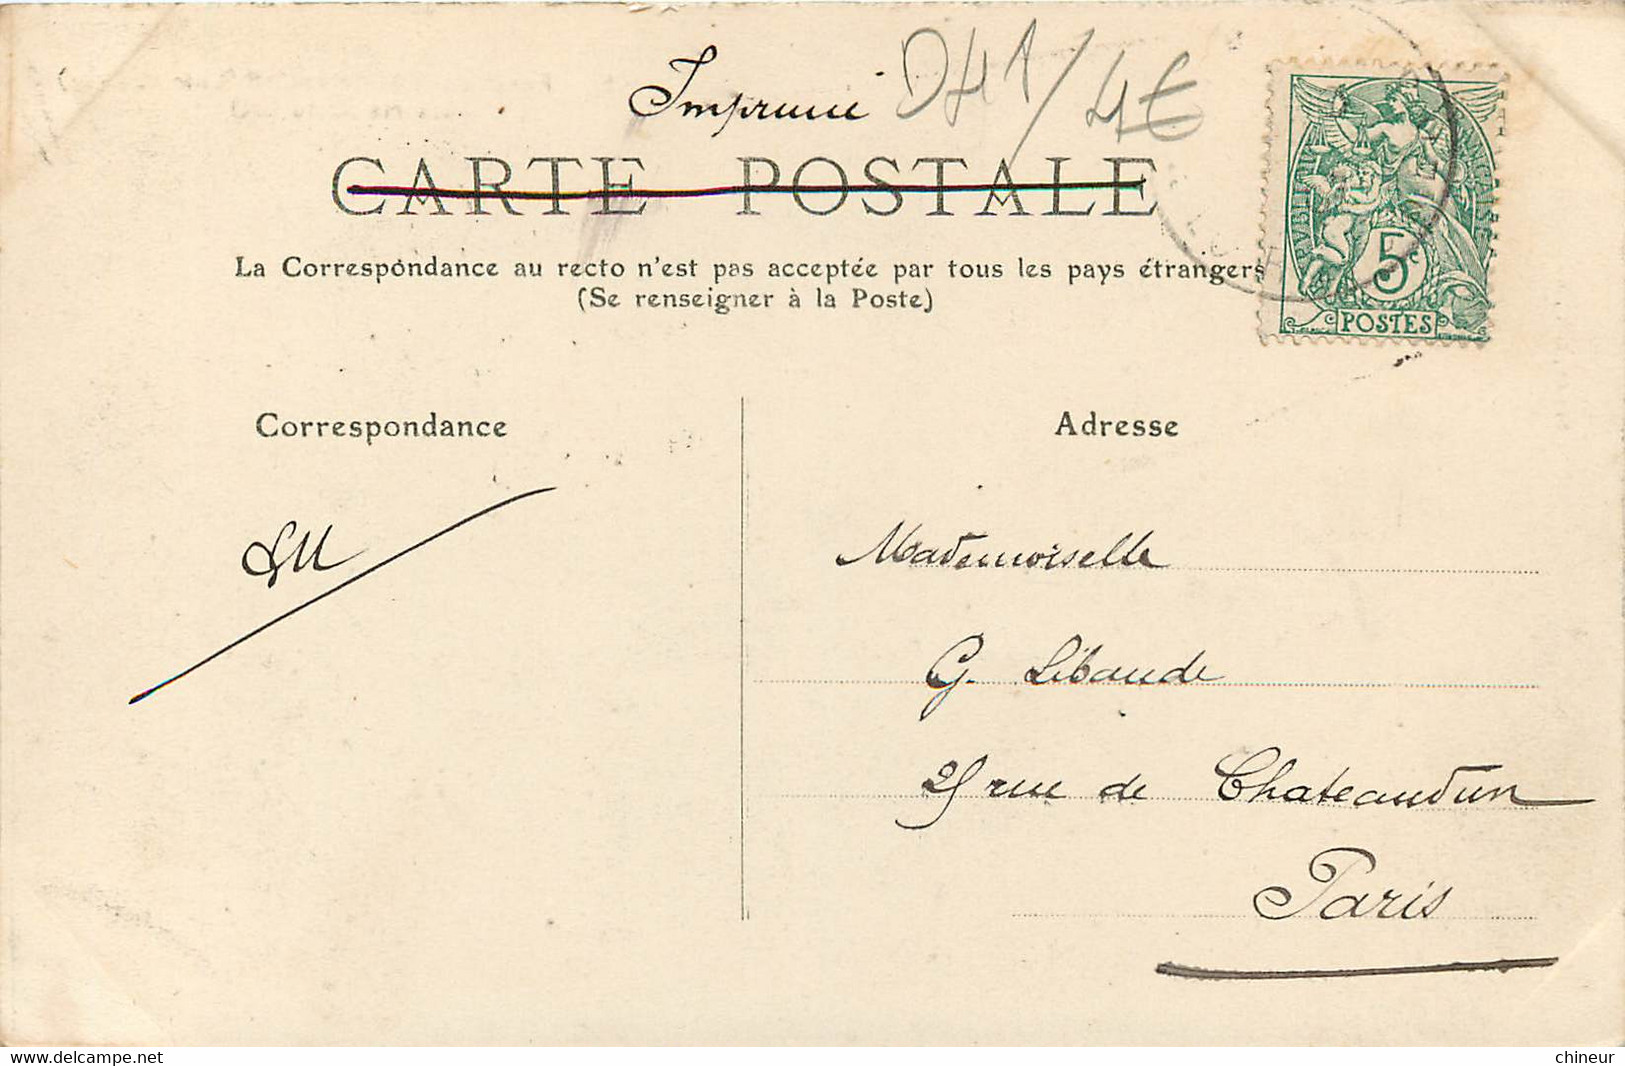 Imprimé D41/4€
CARTE POSTALE
La Correspondance au recto n'est pas acceptée par tous les pays étrangers
(Se renseigner à la Poste)
REPUBLIQUE FRANÇAISE
5c
POSTES
Correspondance
Adresse
Mademoiselle
G. Libaude
25 rue de Chateaudun
Paris
www.delcampe.net
chineur